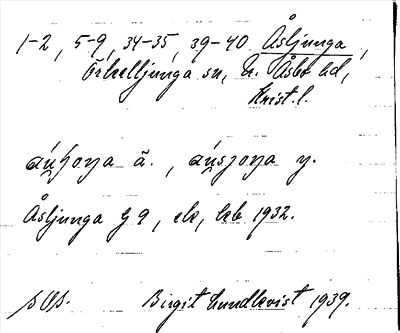 1-2, 5-9, 34-35, 39-40 Åsljunga,
Örkelljunga sn, N. Åsbo hd,
Krist. l.
å., y.
Åsljunga g 9, ek, lxb 1932.
Birgit Lundkvist 1939.